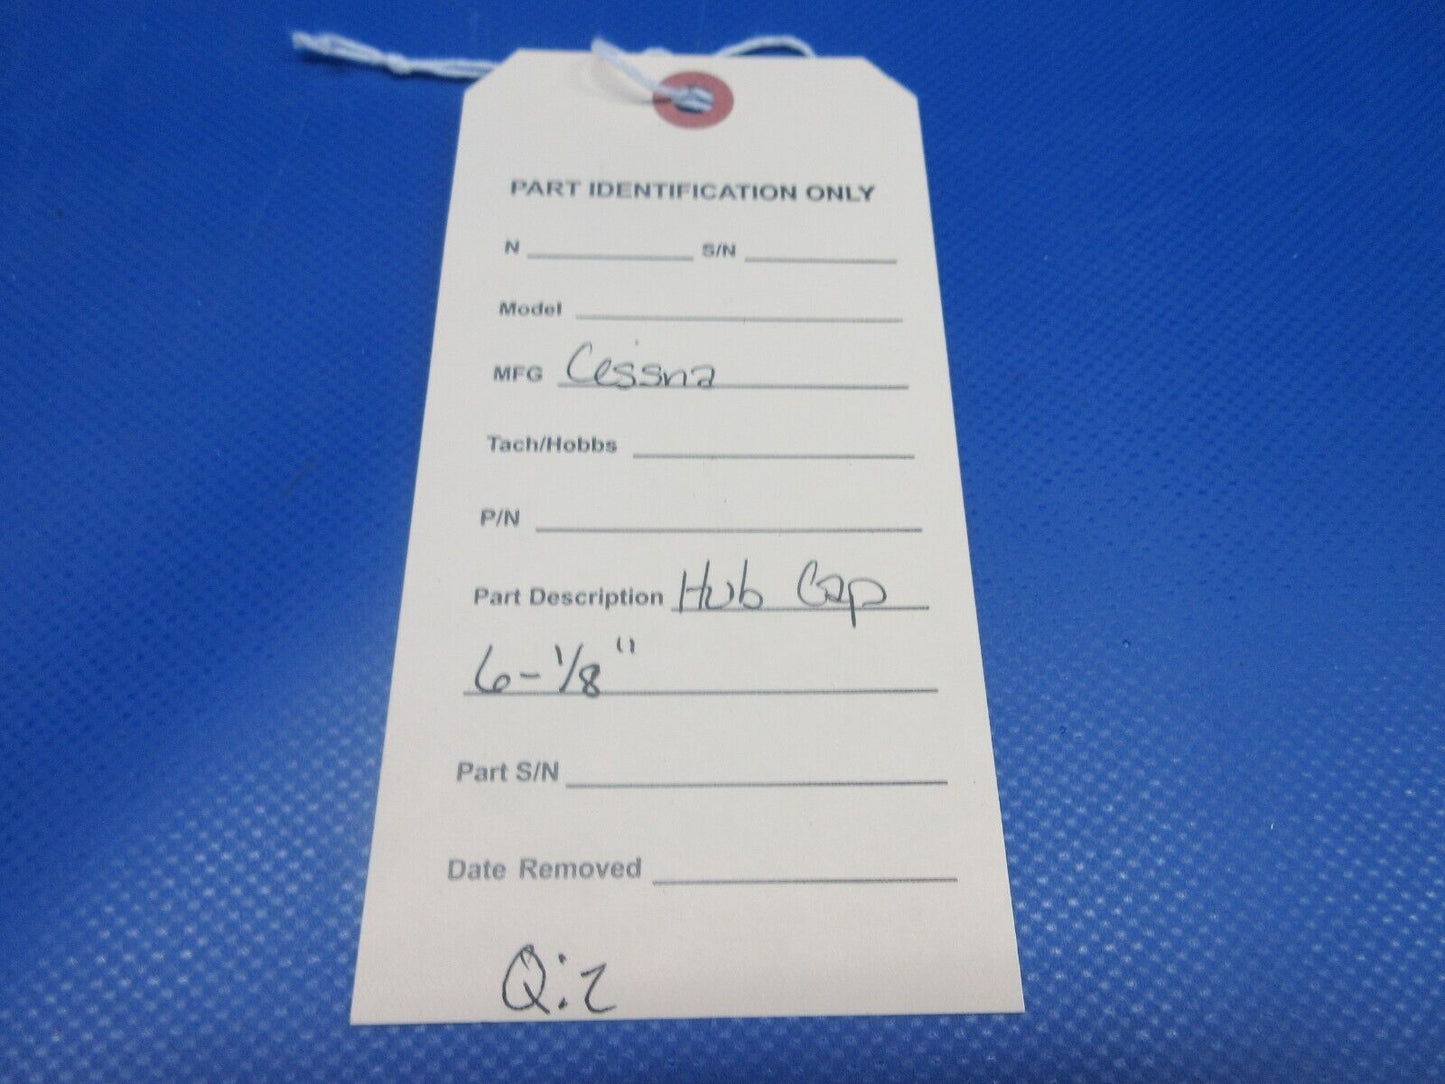 PART IDENTIFICATION ONLY
N S/N
Model
MFG Cessna
Tach/Hobbs
P/N
Part Description Hub Cap
6-1/8"
Part S/N
Date Removed
Q:2